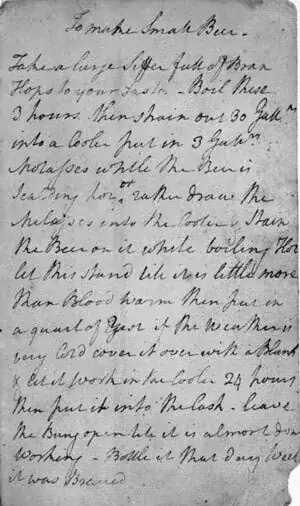 To make Small Beer -
Take a large Siffer full of Bran
Hops to your Taste - Boil these
3 hours. then strain out 30 Galls.
into a Cooler put in 3 Galls.
Molasses while the Beer is
Scalding hot or rather draw the
Melasses into the Cooler & Strain
the Beer on it while boiling Hot
let this stand till it is little more
than Blood warm then put in
a quart of Yest if the weather is
very Cold cover it over with a Blank
& let it work in the Cooler 24 hours
then put it into the Cask - leave
the Bung open till it is almost don
Working - Bottle it that day Week
it was Brewed